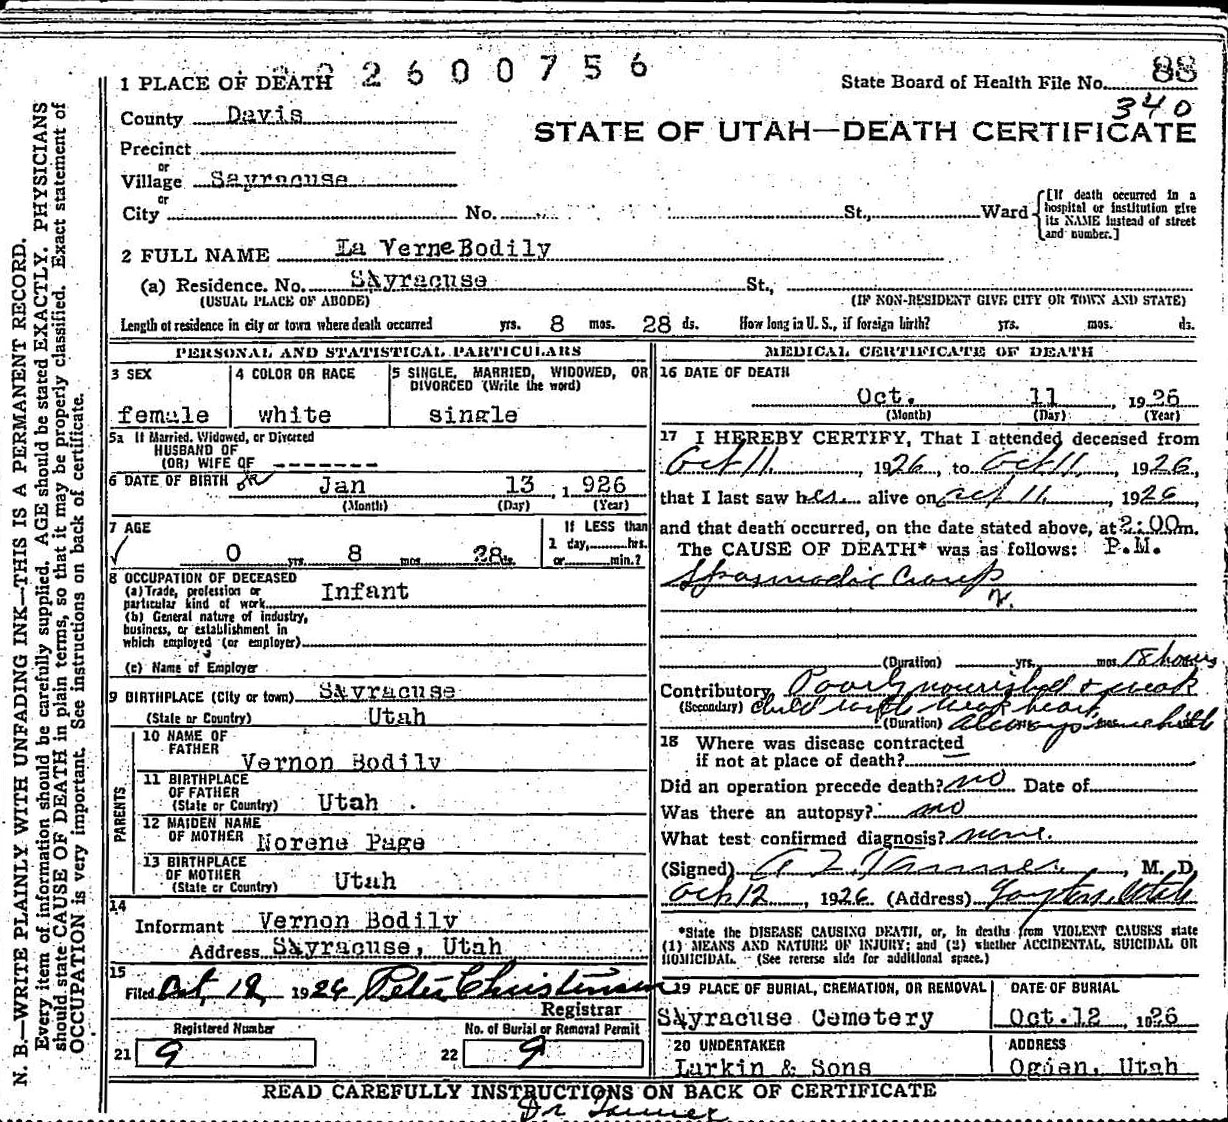 2600756
88
1 PLACE OF DEATH
State Board of Health File No.
340
County Davis
STATE OF UTAH—DEATH CERTIFICATE
Precinct
or
Village Sayracuse
or
City No. St., Ward
[If death occurred in a hospital or institution give its NAME instead of street and number.]
2 FULL NAME La VerneBodily
(a) Residence. No. Sayracuse St.,
(USUAL PLACE OF ABODE) (IF NON-RESIDENT GIVE CITY OR TOWN AND STATE)
Length of residence in city or town where death occurred yrs. 8 mos. 28 ds. How long in U. S., if foreign birth? yrs. mos. ds.
PERSONAL AND STATISTICAL PARTICULARS
3 SEX
female
4 COLOR OR RACE
white
5 SINGLE, MARRIED, WIDOWED, OR DIVORCED (Write the word)
single
5a If Married, Widowed, or Divorced
HUSBAND OF
(OR) WIFE OF -------
6 DATE OF BIRTH Jan 13, 1926
(Month) (Day) (Year)
7 AGE
0 yrs. 8 mos. 28 ds.
If LESS than
1 day, hrs.
or min.?
8 OCCUPATION OF DECEASED
(a) Trade, profession or
particular kind of work Infant
(b) General nature of industry,
business, or establishment in
which employed (or employer)
(c) Name of Employer
9 BIRTHPLACE (City or town) Sayracuse
(State or Country) Utah
PARENTS
10 NAME OF
FATHER Vernon Bodily
11 BIRTHPLACE
OF FATHER
(State or Country) Utah.
12 MAIDEN NAME
OF MOTHER Norene Page
13 BIRTHPLACE
OF MOTHER
(State or Country) Utah
14
Informant Vernon Bodily
Address Sayracuse, Utah
15
Filed Oct, 12, 1926 Peter Christensen
Registrar
Registered Number
21 9
No. of Burial or Removal Permit
22 9
MEDICAL CERTIFICATE OF DEATH
16 DATE OF DEATH
Oct. 11, 1926
(Month) (Day) (Year)
17 I HEREBY CERTIFY, That I attended deceased from
Oct 11, 1926, to Oct 11, 1926,
that I last saw her alive on Oct 11, 1926
and that death occurred, on the date stated above, at 2:00 m.
The CAUSE OF DEATH* was as follows: P.M.
Spasmodic Croup
(Duration) yrs. mos. 18 hours
Contributory Poorly nourished & weak
(Secondary) child with weak heart
(Duration) always
18 Where was disease contracted
if not at place of death?
Did an operation precede death? no Date of
Was there an autopsy? no
What test confirmed diagnosis? none.
(Signed) A Z Tanner, M. D.
Oct 12, 1926 (Address) Layton, Utah
*State the DISEASE CAUSING DEATH, or, in deaths from VIOLENT CAUSES state
(1) MEANS AND NATURE OF INJURY; and (2) whether ACCIDENTAL, SUICIDAL OR
HOMICIDAL. (See reverse side for additional space.)
19 PLACE OF BURIAL, CREMATION, OR REMOVAL
Sayracuse Cemetery
DATE OF BURIAL
Oct.12, 1926
20 UNDERTAKER
Larkin & Sons
ADDRESS
Ogden, Utah
READ CAREFULLY INSTRUCTIONS ON BACK OF CERTIFICATE
Dr Tanner
N. B.—WRITE PLAINLY WITH UNFADING INK—THIS IS A PERMANENT RECORD.
Every item of information should be carefully supplied. AGE should be stated EXACTLY. PHYSICIANS
should state CAUSE OF DEATH in plain terms, so that it may be properly classified. Exact statement of
OCCUPATION is very important. See instructions on back of certificate.